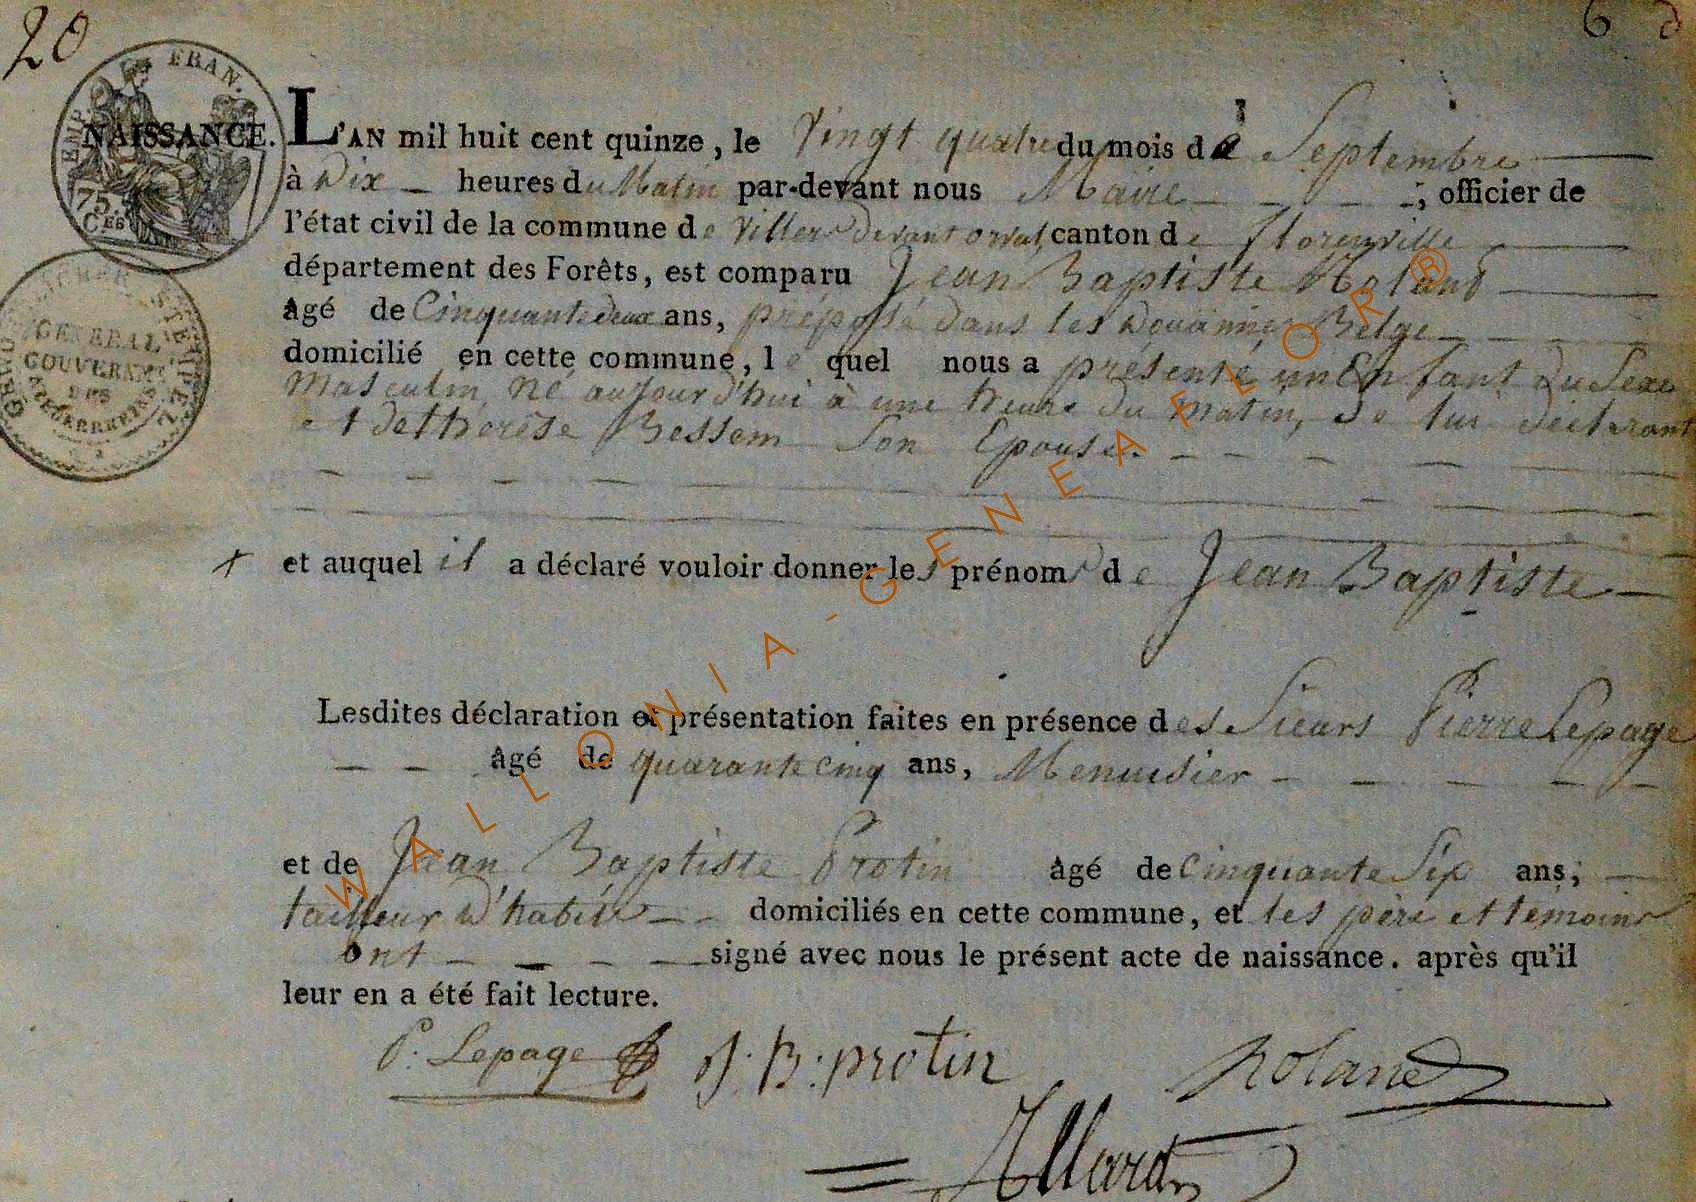 20
6
EMPIRE FRAN.
75
CES
GENERAL
GOUVERNM
DES
NIEDERRHEINS
STEMPEL
NAISSANCE. L'AN mil huit cent quinze, le Vingt quatre du mois de Septembre
à Dix heures du Matin par-devant nous Maire, officier de
l'état civil de la commune de Villers devant orval, canton de florenville
département des Forêts, est comparu Jean Baptiste Roland
âgé de Cinquante deux ans, préposé dans les Douannes Belge
domicilié en cette commune, le quel nous a présenté un Enfant du Sexe
Masculin, né aujourd'hui à une heure du matin, de lui déclarant
et de therèse Bessem Son Epouse.
et auquel il a déclaré vouloir donner les prénoms de Jean Baptiste
Lesdites déclaration et présentation faites en présence des Sieurs Pierre Lepage
âgé de quarante cinq ans, Menuisier
et de Jean Baptiste Protin âgé de cinquante Six ans,
tailleur d'habits domiciliés en cette commune, et les père et temoins
ont signé avec nous le présent acte de naissance. après qu'il
leur en a été fait lecture.
P. Lepage J. B. protin Roland
Allard
WALLONIA-GENEAFLOR®